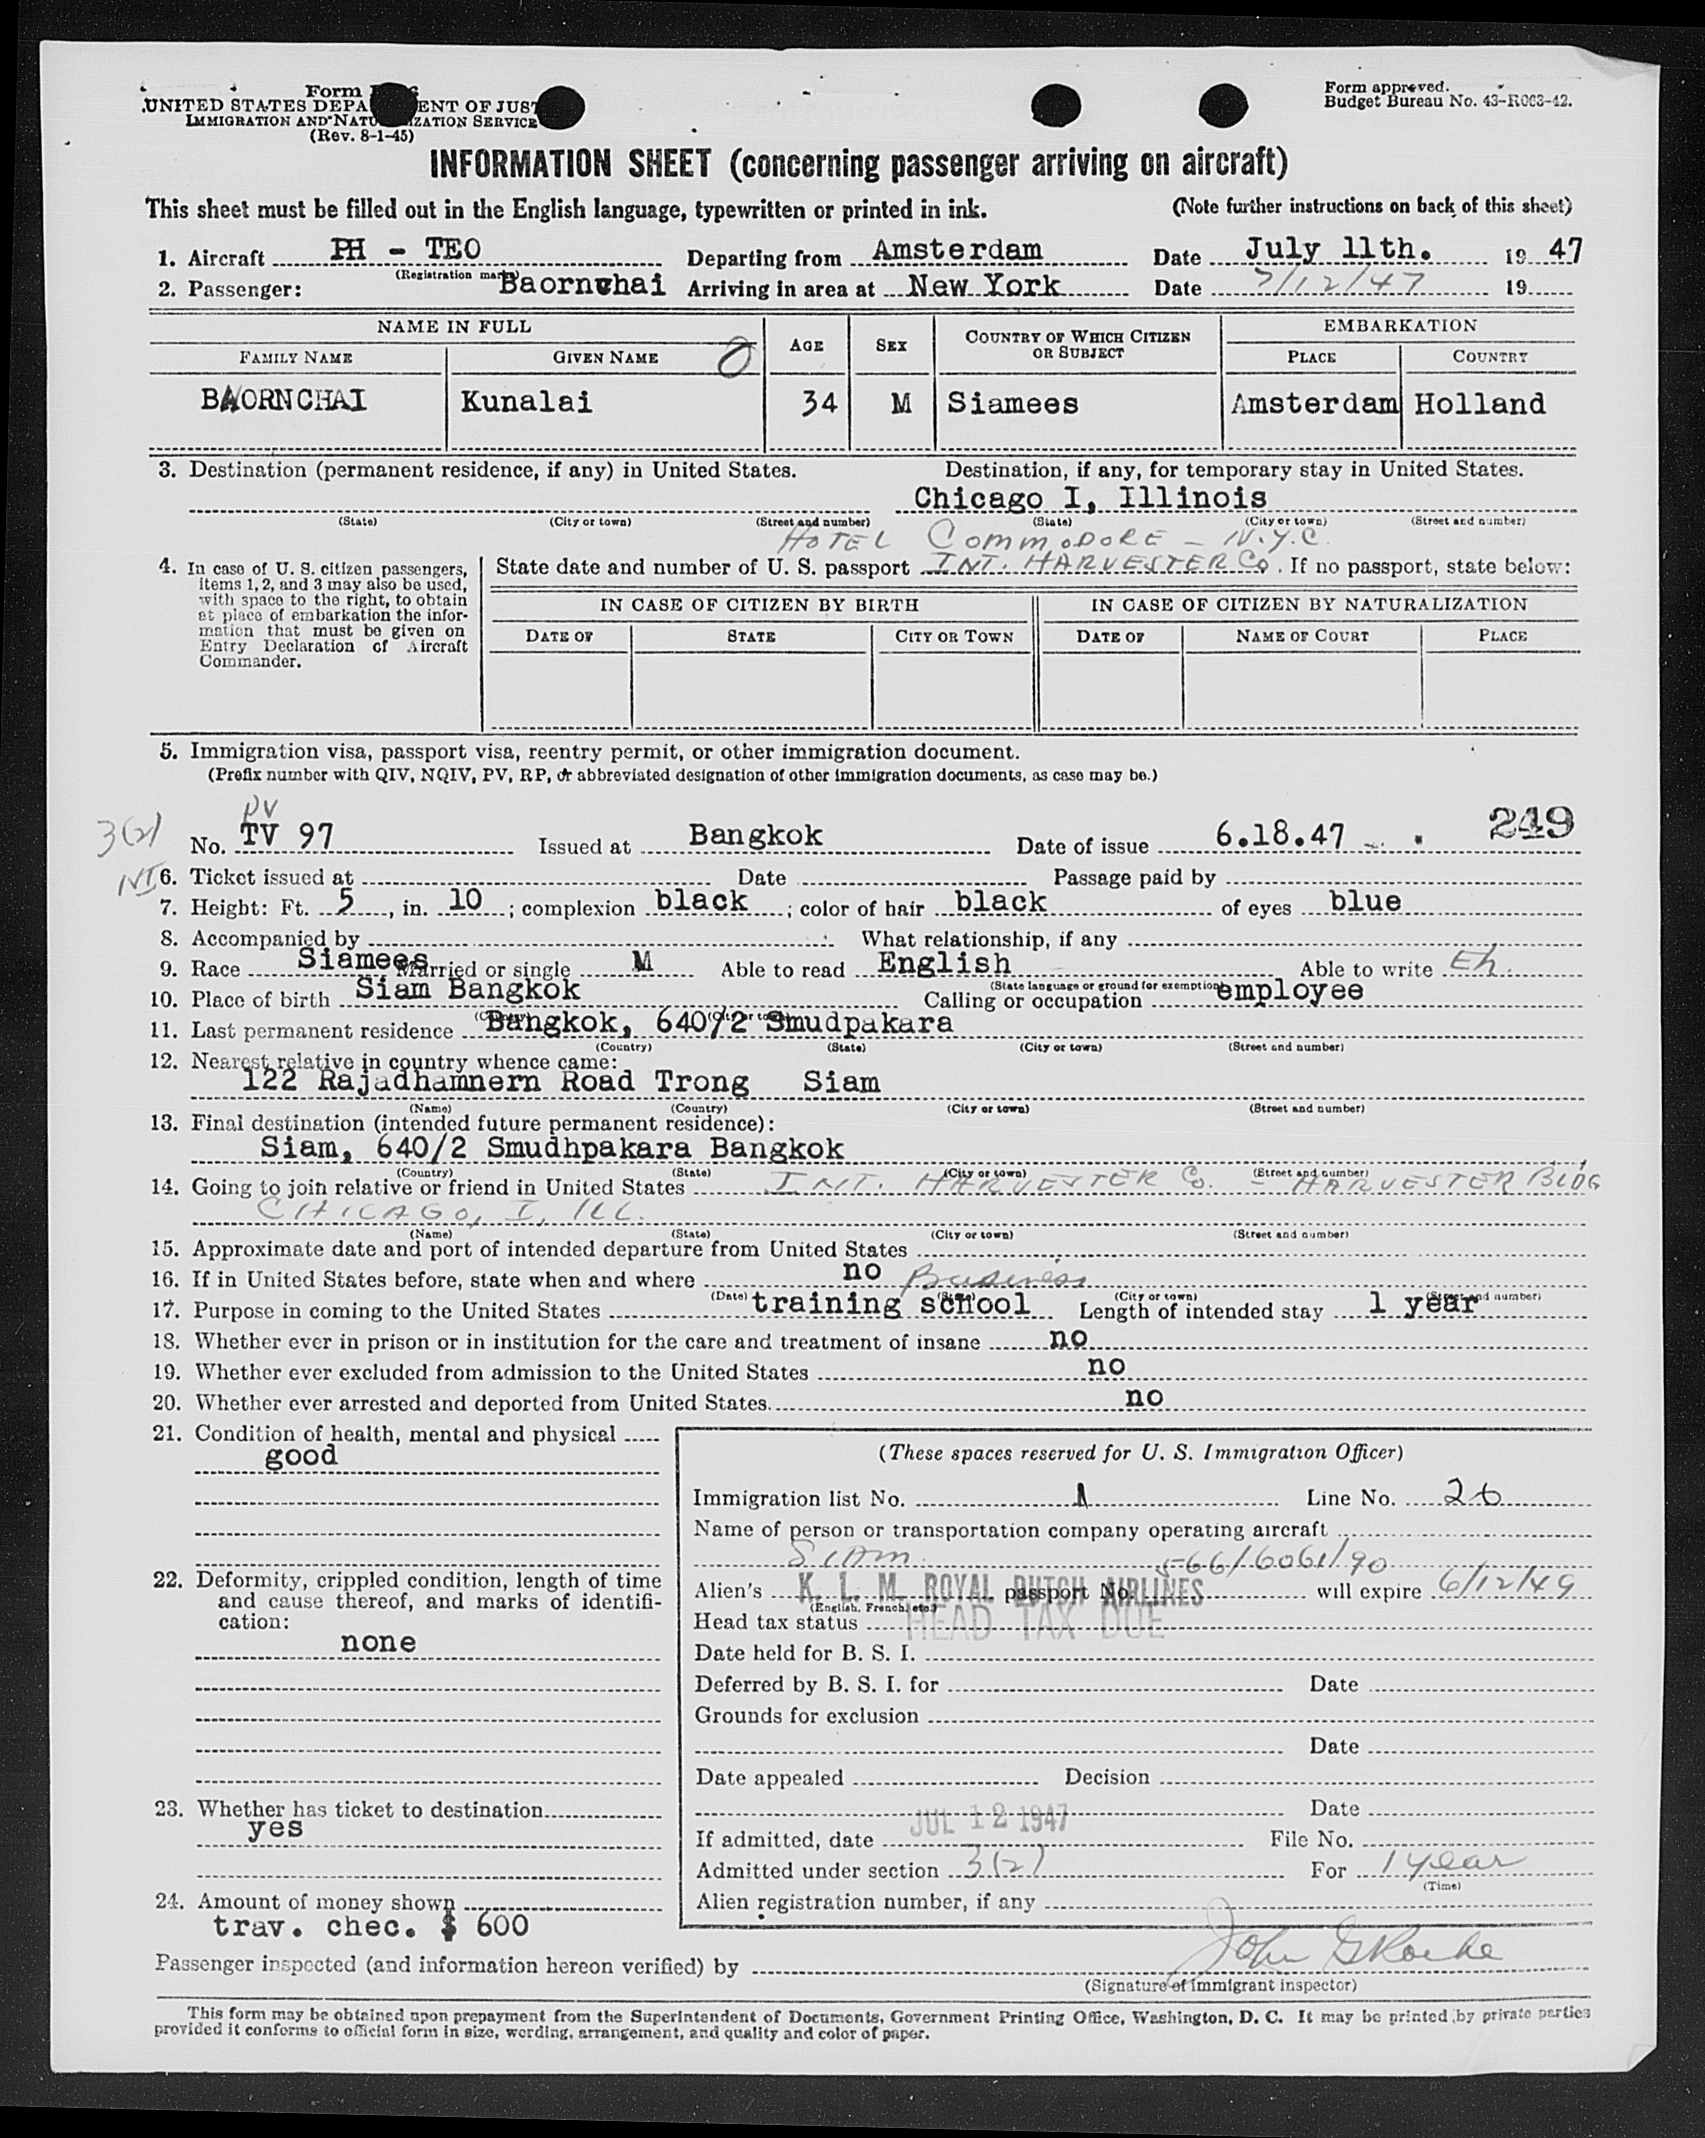 Form
UNITED STATES DEPA ENT OF JUS
IMMIGRATION AND NATU IZATION SERVICE
(Rev. 8-1-45)
Form approved.
Budget Bureau No. 43-R063-42.
INFORMATION SHEET (concerning passenger arriving on aircraft)
This sheet must be filled out in the English language, typewritten or printed in ink. (Note further instructions on back of this sheet)
1. Aircraft PH - TEO Departing from Amsterdam Date July 11th. 1947
(Registration marks)
2. Passenger: Baornchai Arriving in area at New York Date 7/12/47 19
NAME IN FULL AGE SEX COUNTRY OF WHICH CITIZEN OR SUBJECT EMBARKATION
FAMILY NAME GIVEN NAME PLACE COUNTRY
BAORNCHAI Kunalai 34 M Siamees Amsterdam Holland
3. Destination (permanent residence, if any) in United States. Destination, if any, for temporary stay in United States.
Chicago I, Illinois
(State) (City or town) (Street and number) (State) (City or town) (Street and number)
HOTEL COMMODORE - N.Y.C.
4. In case of U. S. citizen passengers, items 1, 2, and 3 may also be used, with space to the right, to obtain at place of embarkation the information that must be given on Entry Declaration of Aircraft Commander.
State date and number of U. S. passport INT. HARVESTER Co. If no passport, state below:
IN CASE OF CITIZEN BY BIRTH IN CASE OF CITIZEN BY NATURALIZATION
DATE OF STATE CITY OR TOWN DATE OF NAME OF COURT PLACE
5. Immigration visa, passport visa, reentry permit, or other immigration document.
(Prefix number with QIV, NQIV, PV, RP, or abbreviated designation of other immigration documents, as case may be.)
PV
3(2) No. TV 97 Issued at Bangkok Date of issue 6.18.47 249
NI 6. Ticket issued at Date Passage paid by
7. Height: Ft. 5, in. 10; complexion black; color of hair black of eyes blue
8. Accompanied by What relationship, if any
9. Race Siamees Married or single M Able to read English Able to write Eh
(State language or ground for exemption)
10. Place of birth Siam Bangkok Calling or occupation employee
(Country) (City or town)
11. Last permanent residence Bangkok, 640/2 Smudpakara
(Country) (State) (City or town) (Street and number)
12. Nearest relative in country whence came:
122 Rajadhamnern Road Trong Siam
(Name) (Country) (City or town) (Street and number)
13. Final destination (intended future permanent residence):
Siam, 640/2 Smudhpakara Bangkok
(Country) (State) (City or town) (Street and number)
14. Going to join relative or friend in United States INT. HARVESTER Co. - HARVESTER BLDG
CHICAGO, I, ILL.
(Name) (State) (City or town) (Street and number)
15. Approximate date and port of intended departure from United States
16. If in United States before, state when and where no Business
(Date) (State) (City or town) (Street and number)
17. Purpose in coming to the United States training school Length of intended stay 1 year
18. Whether ever in prison or in institution for the care and treatment of insane no
19. Whether ever excluded from admission to the United States no
20. Whether ever arrested and deported from United States. no
21. Condition of health, mental and physical
good
22. Deformity, crippled condition, length of time and cause thereof, and marks of identification:
none
23. Whether has ticket to destination
yes
24. Amount of money shown
trav. chec. $ 600
(These spaces reserved for U. S. Immigration Officer)
Immigration list No. 1 Line No. 26
Name of person or transportation company operating aircraft
SIAM 566/6061/90
Alien's K. L. M. ROYAL DUTCH AIRLINES passport No. will expire 6/12/49
(English, French, etc.)
Head tax status HEAD TAX DUE
Date held for B. S. I.
Deferred by B. S. I. for Date
Grounds for exclusion
Date
Date appealed Decision
Date
If admitted, date JUL 12 1947 File No.
Admitted under section 3(2) For 1 year
(Time)
Alien registration number, if any
Passenger inspected (and information hereon verified) by John G Roche
(Signature of immigrant inspector)
This form may be obtained upon prepayment from the Superintendent of Documents, Government Printing Office, Washington, D. C. It may be printed by private parties
provided it conforms to official form in size, wording, arrangement, and quality and color of paper.